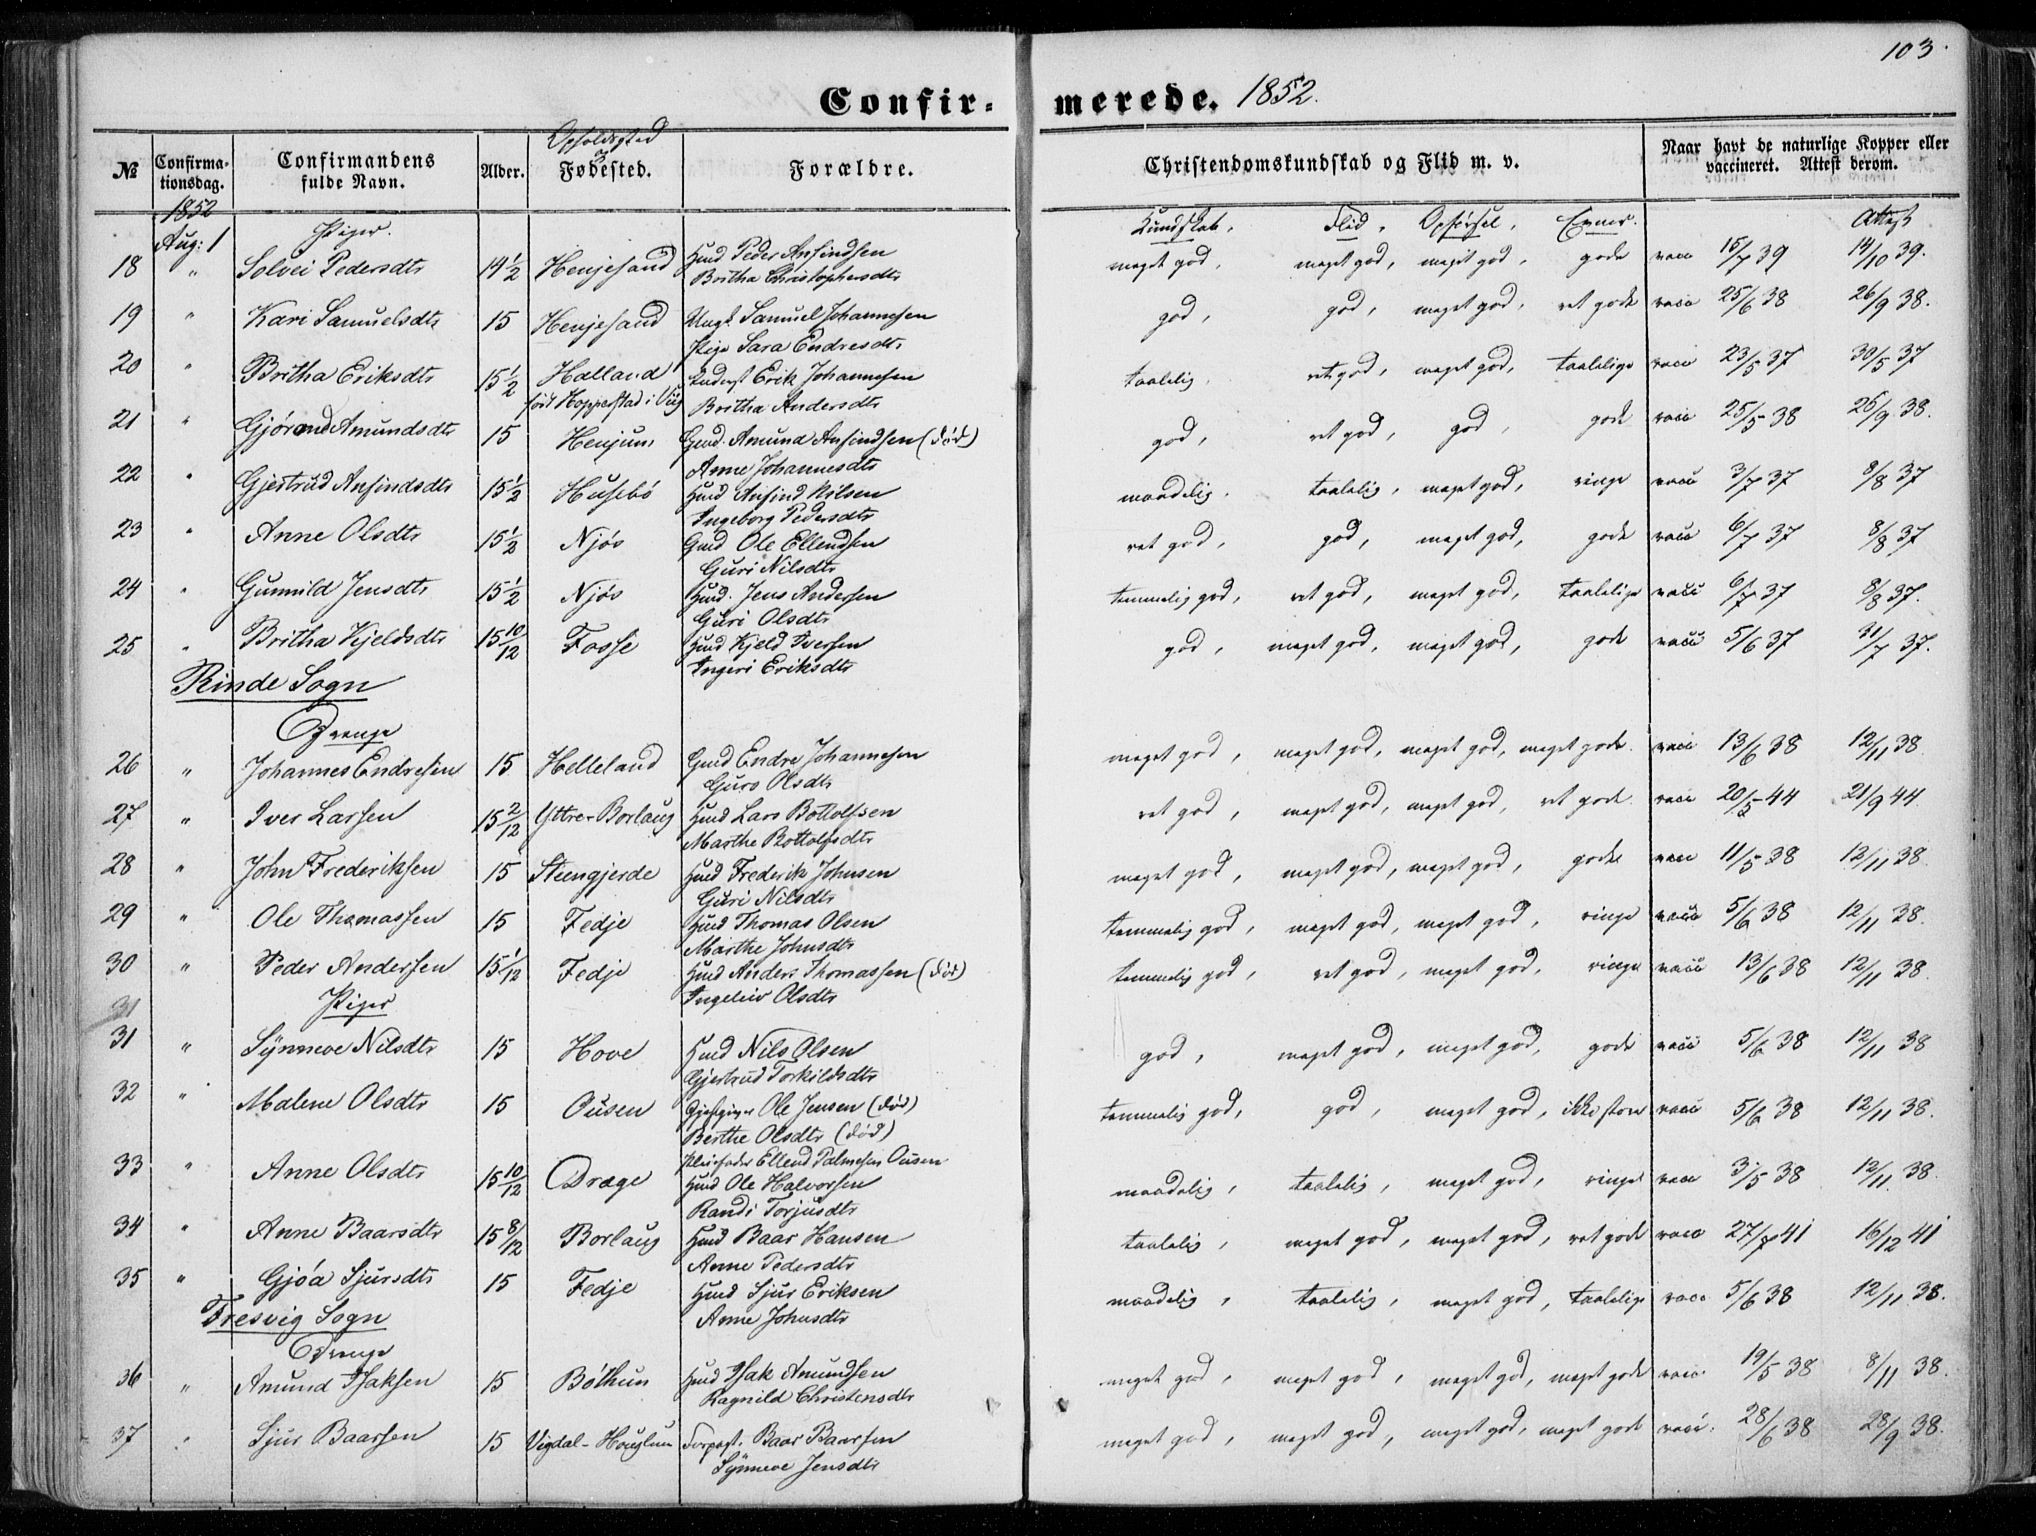 103.
Confirmerede. 1852.
№ Confirmationsdag. Confirmandens fulde Navn. Alder. Opholdssted & Fødested. Forældre. Christendomskundskab og Flid m. v. Naar havt de naturlige Kopper eller vaccineret. Attest derom.
1852
Aug: 1 Piger. Kundskab, Flid, Opførsel, Evner. Attest
18 " Solvei Pedersdtr 14½ Henjesand Huusmd Peder Ansindsen meget god, meget god, meget god, gode vacc 15/7 39 14/10 39.
Britha Christophersdtr
19 " Kari Samuelsdtr 15 Henjesand Ungk. Samuel Johannesen god, god, meget god, ret gode vacc 25/6 38 26/9 38.
Pige Sara Endresdtr
20 " Britha Eriksdtr 15½ Halland Erik Johannesen taalelig, ret god, meget god, taalelige vacc 23/5 37 30/5 37
født Hopperstad i Viig Britha Andersdtr
21 " Gjørond Amundsdtr 15 Henjum Gmd. Amund Ansindsen (død) god, ret god, god, gode vacc 25/5 38 26/9 38.
Anne Johannesdtr
22 " Gjertrud Ansindsdtr 15½ Husebö Hmd Ansind Nilsen maadelig, taalelig, meget god, ringe vacc 3/7 37 8/8 37
Ingeborg Pedersdtr
23 " Anne Olsdtr 15½ Njøs Gmd Ole Ellendsen ret god, god, meget god, gode vacc 6/7 37 8/8 37
Guri Nilsdtr
24 " Gunnild Jensdtr 15½ Njøs Hmd. Jens Andersen temmelig god, ret god, meget god, taalelige vacc 6/7 37 8/8 37.
Guri Olsdtr
25 " Britha Kjeldsdtr 15 10/12 Fosse Hmd Kjeld Iversen god, meget god, meget god, gode vacc 5/6 37 31/7 37.
Ingeri Eriksdtr
Rinde Sogn
Drenge
26 " Johannes Endresen 15 Helleland Gmd Endre Johannesen meget god, meget god, meget god, meget gode vacc 13/6 38 12/11 38.
Guro Olsdtr
27 " Iver Larsen 15 2/12 Yttre Borlaug Hmd Lars Bottolfsen ret god, meget god, meget god, ret gode vacc 20/5 44 21/9 44
Marthe Bottolfsdtr
28 " John Frederiksen 15 Steengjerde Hmd Frederik Johnsen meget god, meget god, meget god, gode vacc 11/5 38 12/11 38.
Guri Nilsdtr
29 " Ole Thomassen 15 Fedje Hmd Thomas Olsen temmelig god, meget god, meget god, ringe vacc 5/6 38 12/11 38.
Marthe Johnsdtr
30 " Peder Andersen 15 1/12 Fedje Hmd Anders Thomassen (død) temmelig god, ret god, meget god, ringe vacc 13/6 38 12/11 38.
Ingeleiv Olsdtr
31 Piger
31 " Synneve Nilsdtr 15 Hove Hmd Nils Olsen god, meget god, meget god, gode vacc 5/6 38 12/11 38
Gjertrud Torkildsdtr
32 " Malene Olsdtr 15 Ousen Gjestgiver Ole Jensen (død) temmelig god, god, meget god, ikke store vacc 5/6 38 12/11 38.
Berthe Olsdtr (død)
Pleiefader Ellend Palmesen Ousen
33 " Anne Olsdtr 15 10/12 Dræge Hmd Ole Halvorsen maadelig, taalelig, meget god, ringe vacc 3/5 38 12/11 38.
Randi Torjusdtr
34 " Anne Baarsdtr 15 8/12 Borlaug Hmd Baar Hansen taalelig, meget god, meget god, ret gode vacc 27/7 41 16/12 41
Anne Pedersdtr
35 " Gjøa Sjursdtr 15 Fedje Hmd Sjur Eriksen maadelig, taalelig, meget god, taalelige vacc 5/6 38 12/11 38.
Anne Johnsdtr
Fresvig Sogn
Drenge
36 " Amund Isaksen 15 Böthun Hmd Isak Amundsen meget god, meget god, meget god, meget gode vacc 19/5 38 8/11 38.
Ragnild Christensdtr
37 " Sjur Baarsen 15 Vigdal-Houglum Forpagt. Baar Baarsen meget god, meget god, meget god, meget gode vacc. 28/6 38 28/9 38.
Synneve Jensdtr